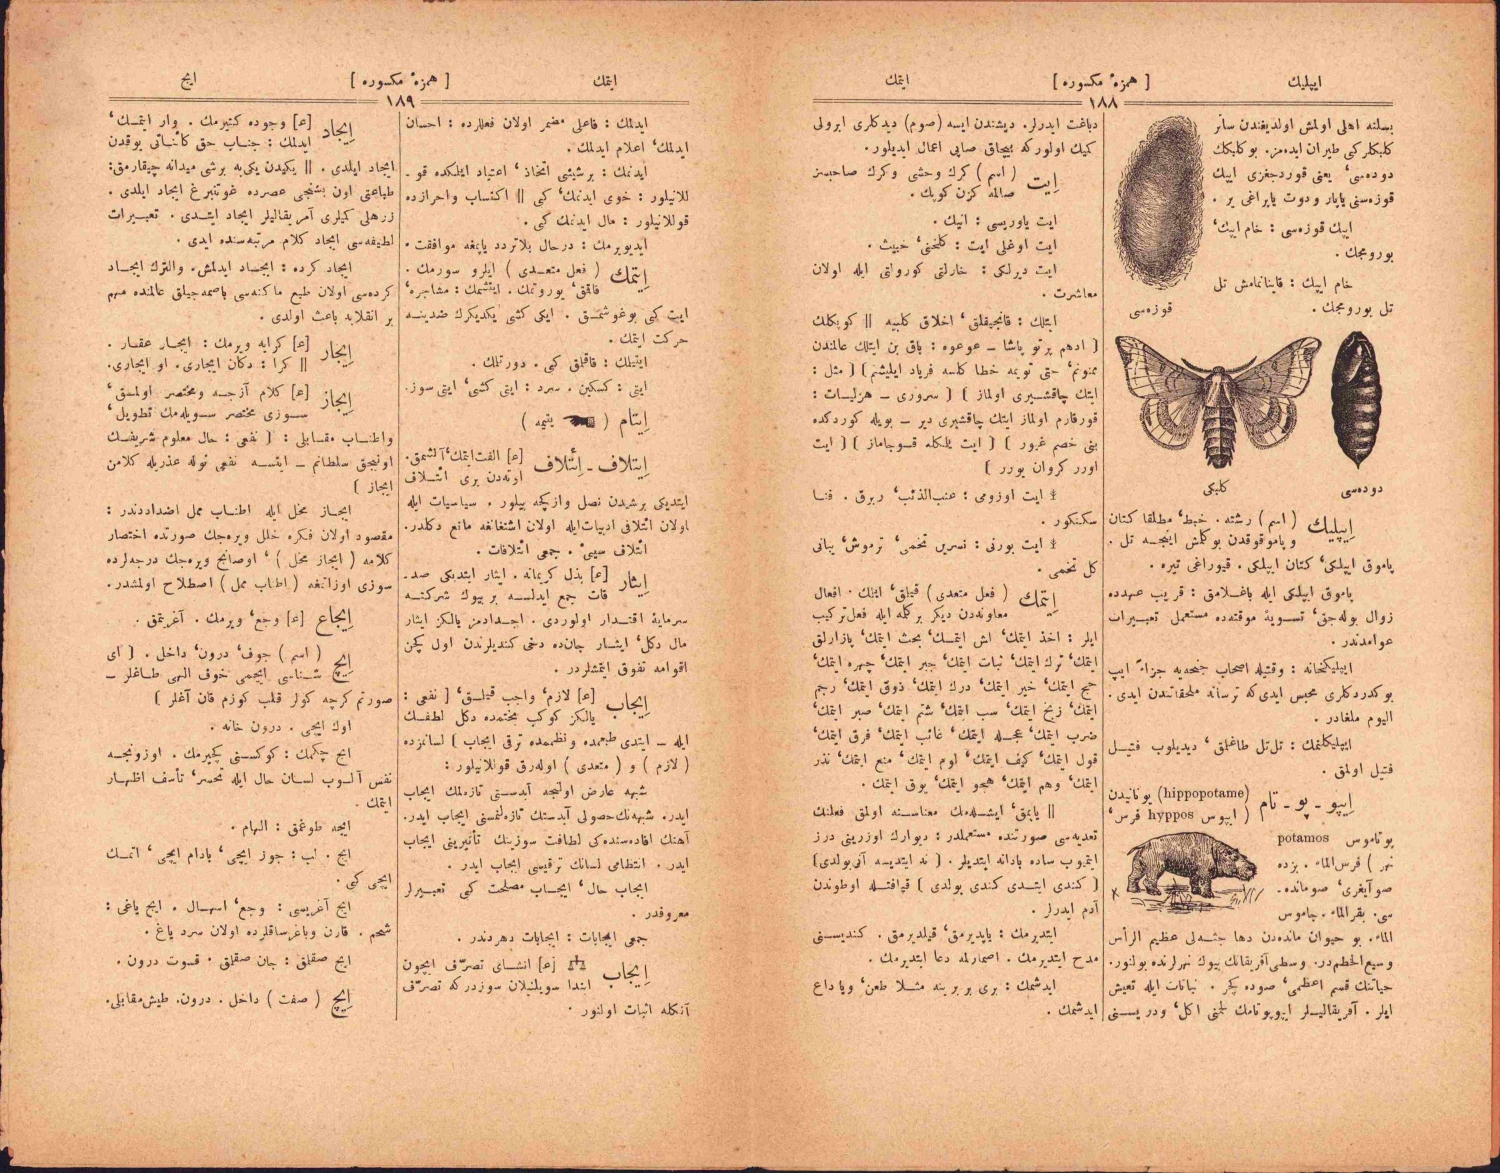 ایپلیك
[ همزهٔ مكسوره ]
ایتمك
١٨٨
بسلنه اهلی اولمش اولدیغندن سائر
كلبكلر كبی طیران ایده‌مز. بو كلبكك
دوده‌سی، یعنی قوردجغزی ایپك
قوزه‌سنی یاپار ودوت یاپراغی یر .
ایپك قوزه‌سی : خام ایپك،
بورومجك .
خام ایپك : قاینانمامش تل
تل بورومجك .
قوزه‌سی
كلبكی
دوده‌سی
اِیپلیك ( اسم ) رشته . خیط، مطلقا كتان
و پاموقوقدن بوكلمش اینجه تل .
پاموق ایپلكی، كتان ایپلكی . قیوراغی تیره .
پاموق ایپلكی ایله باغلامق : قریب عهدده
زوال بوله‌جق، تسویهٔ موقته‌ده مستعملی تعبیرات
عوامدندر .
ایپلیكخانه : وقتیله اصحاب جنحه‌یه جزاءً ایپ
بوكدردكلری محبس ایدی كه ترسانه ملحقاتندن ایدی .
الیوم ملغادر .
ایپلیكلنمك : تل‌تل طاغلق، دیدیلوب فتیل
فتیل اولمق .
اِیپو ـ پو ـ تام (hippopotame) یونانیدن
( ایپوس hyppos فرس،
پوتاموس potamos
نهر ) فرس‌الماء . بزده
صو آیغری، صو مانده ـ
سی. بقرالماء . جاموس
الماء. بو حیوان مانده‌دن دها جثه‌لی عظیم الرأس
وسیع الخطم‌در. وسطی آفریقانك بیوك نهرلرنده بولنور.
حیاتنك قسم اعظمی، صوده كچر . نباتات ایله تعیش
ایلر . آفریقالیلر ایپوپوتامك لحمنی اكل، و در یسنی
دباغت ایدرلر. دیشندن ایسه (صوم) دیدكلری ایرولی
كیك اولوركه بیچاق صاپی اعمال ایدیلور.
اِیت ( اسم ) كرك وحشی وكرك صاحبسز
صالمه كزن كوپك .
ایت یاوریسی : انیك .
ایت اوغلی ایت : كلخنی، خبیث .
ایت دیرلكی : خارلتی كورولتی ایله اولان
معاشرت .
ایتلك : قانجیقلق، اخلاق كلبیه || كوپكلك
( ادهم پرتو پاشا ـ عوعوه : باق بن ایتلك عالمندن
ممنونم، حتی تویمه خطا كلسه فریاد ایلیشم ) ( مثل :
ایتك چاقشیری اولماز ) ( سروری ـ هزلیات :
قورقارم اولماز ایتك چاقشیری دیر ـ بویله كوردكده
بنی خصم غیور ) ( ایت یلكله قوجاماز ) ( ایت
اورر كروان یورر )
ایت اوزومی : عنب‌الذئب، ربرق . فنا
سكنكور .
ایت بورنی : نسرین تخمی، ترموش، یبانی
كل تخمی .
اِیتمك ( فعل متعدی ) قیلق، ایلك . افعال
معاوندن دیكر بر كلمه ایله فعل‌تركیب
ایلر : اخذ ایتمك، اش ایتمك، بحث ایتمك، پازارلق
ایتمك، ترك ایتمك، ثبات ایتمك، جبر ایتمك، چهره ایتمك،
حج ایتمك، خیر ایتمك، درك ایتمك، ذوق ایتمك، رجم
ایتمك، زیخ ایتمك، سب ایتمك، شتم ایتمك، صبر ایتمك،
ضرب ایتمك، عجله ایتمك، غائب ایتمك، فرق ایتمك،
قول ایتمك، كیف ایتمك، لوم ایتمك، منع ایتمك، نذر
ایتمك، وهم ایتمك، هجو ایتمك، یوق ایتمك .
|| یاپمق، ایشله‌مك معناسنه اولمق فعلنك
تعدیه‌سی صورتنده مستعملدر : دیوارك اوزرینی درز
ایتیوب ساده بادانه ایتدیلر . ( نه ایتدیسه آنی بولدی)
( كندی ایتدی كندی بولدی ) قیافتله اوطوندن
آدم ایدرلر .
ایتدیرمك : یاپدیرمق، قیلدیرمق . كندیسنی
مدح ایتدیرمك . اصمارلمه دعا ایتدیرمك .
ایدشمك : بری بر برینه مثلا طعن، ویا داع
ایدشمك .
ایتمك
[ همزهٔ مكسوره ]
ایج
١٨٩
ایدلمك : فاعلی مضمر اولان فعللرده : احسان
ایدلمك، اعلام ایدلمك .
ایدنمك : برشیئی اتخاذ، اعتیاد ایلمكده قو ـ
للانیلور : خوی ایدنمك، كبی || اكتساب واحرازده
قوللانیلور : مال ایدنمك كبی .
ایدیویرمك : درحال بلاتردد یاپمغه موافقت .
اِیتمك ( فعل متعدی ) ایلرو سورمك .
قاقمق، یوروتمك . ایتشمك : مشاجره،
ایت كبی بوغوشمق . ایكی كشی یكدیكرك ضدینه
حركت ایتمك .
ایتیلمك : قاقلمق كبی . دورتمك .
ایتی : كسكین . سرد : ایتی كشی، ایتی سوز.
اِیتام ( یتیمه )
اِیتلاف ـ اِئتلاف [ع] الفت‌ایتمك، آلشمق.
اوته‌دن بری ائتلاف
ایتدیكی برشیدن نصل وازكچه بیلور . سیاسیات ایله
اولان ائتلافی ادبیات‌ایله اولان اشتغالنه مانع دكلدر.
ائتلاف سیئ . جمعی ائتلافات .
اِیثار [ع] بذل كریمانه . ایثار ایتدیكی صد ـ
قات جمع ایدلسه بر بیوك شركته
سرمایهٔ اقتدار اولوردی . اجدادمز یالكز ایثار
مال دكل، ایثار جان‌ده دخی كندیلرندن اول كچن
اقوامه تفوق ایتمشلردر.
اِیجاب [ع] لازم، واجب قیلمق، ( نفعی :
یالكز كوكب بختمده دكل لطفك
ایله ـ ایتدی طبعمده و نظممده ترقی ایجاب ) لسانزده
( لازم ) و ( متعدی ) اوله‌رق قوللانیلور :
شبهه عارض اولنجه آبدستی تازه‌لمك ایجاب
ایدر. شبهه‌نك‌حصولی آبدستك تازه‌لنمسنی ایجاب ایدر.
آهنك افاده‌سنده‌كی لطافت سوزینك تأثیرینی ایجاب
ایدر . انتظامی لسانك ترقیسنی ایجاب ایدر .
ایجاب حال، ایجاب مصلحت كبی تعبیرلر
معروفدر .
جمعی ایجابات : ایجابات دهردندر .
اِیجاب [ع] انشای تصرف ایچون
ابتدا سویلنیلان سوزدركه تصرف
آنكله اثبات اولنور .
اِیجاد [ع] وجوده كتیرمك . وار ایتمك،
ایدلمك : جناب حق كائناتی یوقدن
ایجاد ایلدی . || یكیدن یكی‌یه برشی میدانه چیقارمق:
طباعتی اون بشنجی عصرده غوتنبرغ ایجاد ایلدی .
زرهلی كمیلری آمریقالیلر ایجاد ایتدی . تعبیرات
لطیفه‌سی ایجاد كلام مرتبه‌سنده ایدی .
ایجاد كرده : ایجاد ایدلمش. والترك ایجاد
كرده‌سی اولان طبع ماكنه‌سی باصمه‌جیلق عالمنده مهم
بر انقلابه باعث اولدی .
اِیجار [ع] كرایه ویرمك : ایجار عقار .
|| كرا : دكان ایجاری. او ایجاری.
اِیجاز [ع] كلام آزجه ومختصر اولمق،
سوزی مختصر سویله‌مك تطویل،
واطناب مقابلی : ( نفعی : حال معلوم شریفك
اولیجق سلطانم ـ ایتسه نفعی نوله عذریله كلامن
ایجاز )
ایجاز مخل ایله اطناب ممل اضداددندر :
مقصود اولان فكره خلل ویره‌جك صورتده اختصار
كلامه ( ایجاز مخل )، اوصانج ویره‌جك درجه‌لرده
سوزی اوزاتمغه ( اطناب ممل ) اصطلاح اولمشدر.
اِیجاع [ع] وجع، ویرمك . آغریتمق .
اِیچ ( اسم ) جوف، درون، داخل . ( آی
شناسی ایچمی خوف الهی طاغلر ـ
صورتم كرچه كولر قلب كوزم قان آغلر )
اوك ایچی . درون خانه .
ایچ چكمك : كوكسنی كچیرمك . اوزونجه
نفس آلوب لسان حال ایله تحسر، تأسف اظهار
ایتمك .
ایچه طوغمق : الهام .
ایچ . لب : جوز ایچی، بادام ایچی، اتمك
ایچی كبی .
ایچ آغریسی : وجع، اسهال . ایچ یاغی :
شحم . قارن وباغرساقلرده اولان سرد یاغ .
ایچ صقلق : جان صقلق . قسوت درون .
اِیچ ( صفت ) داخل . درون. طیش‌مقابلی.